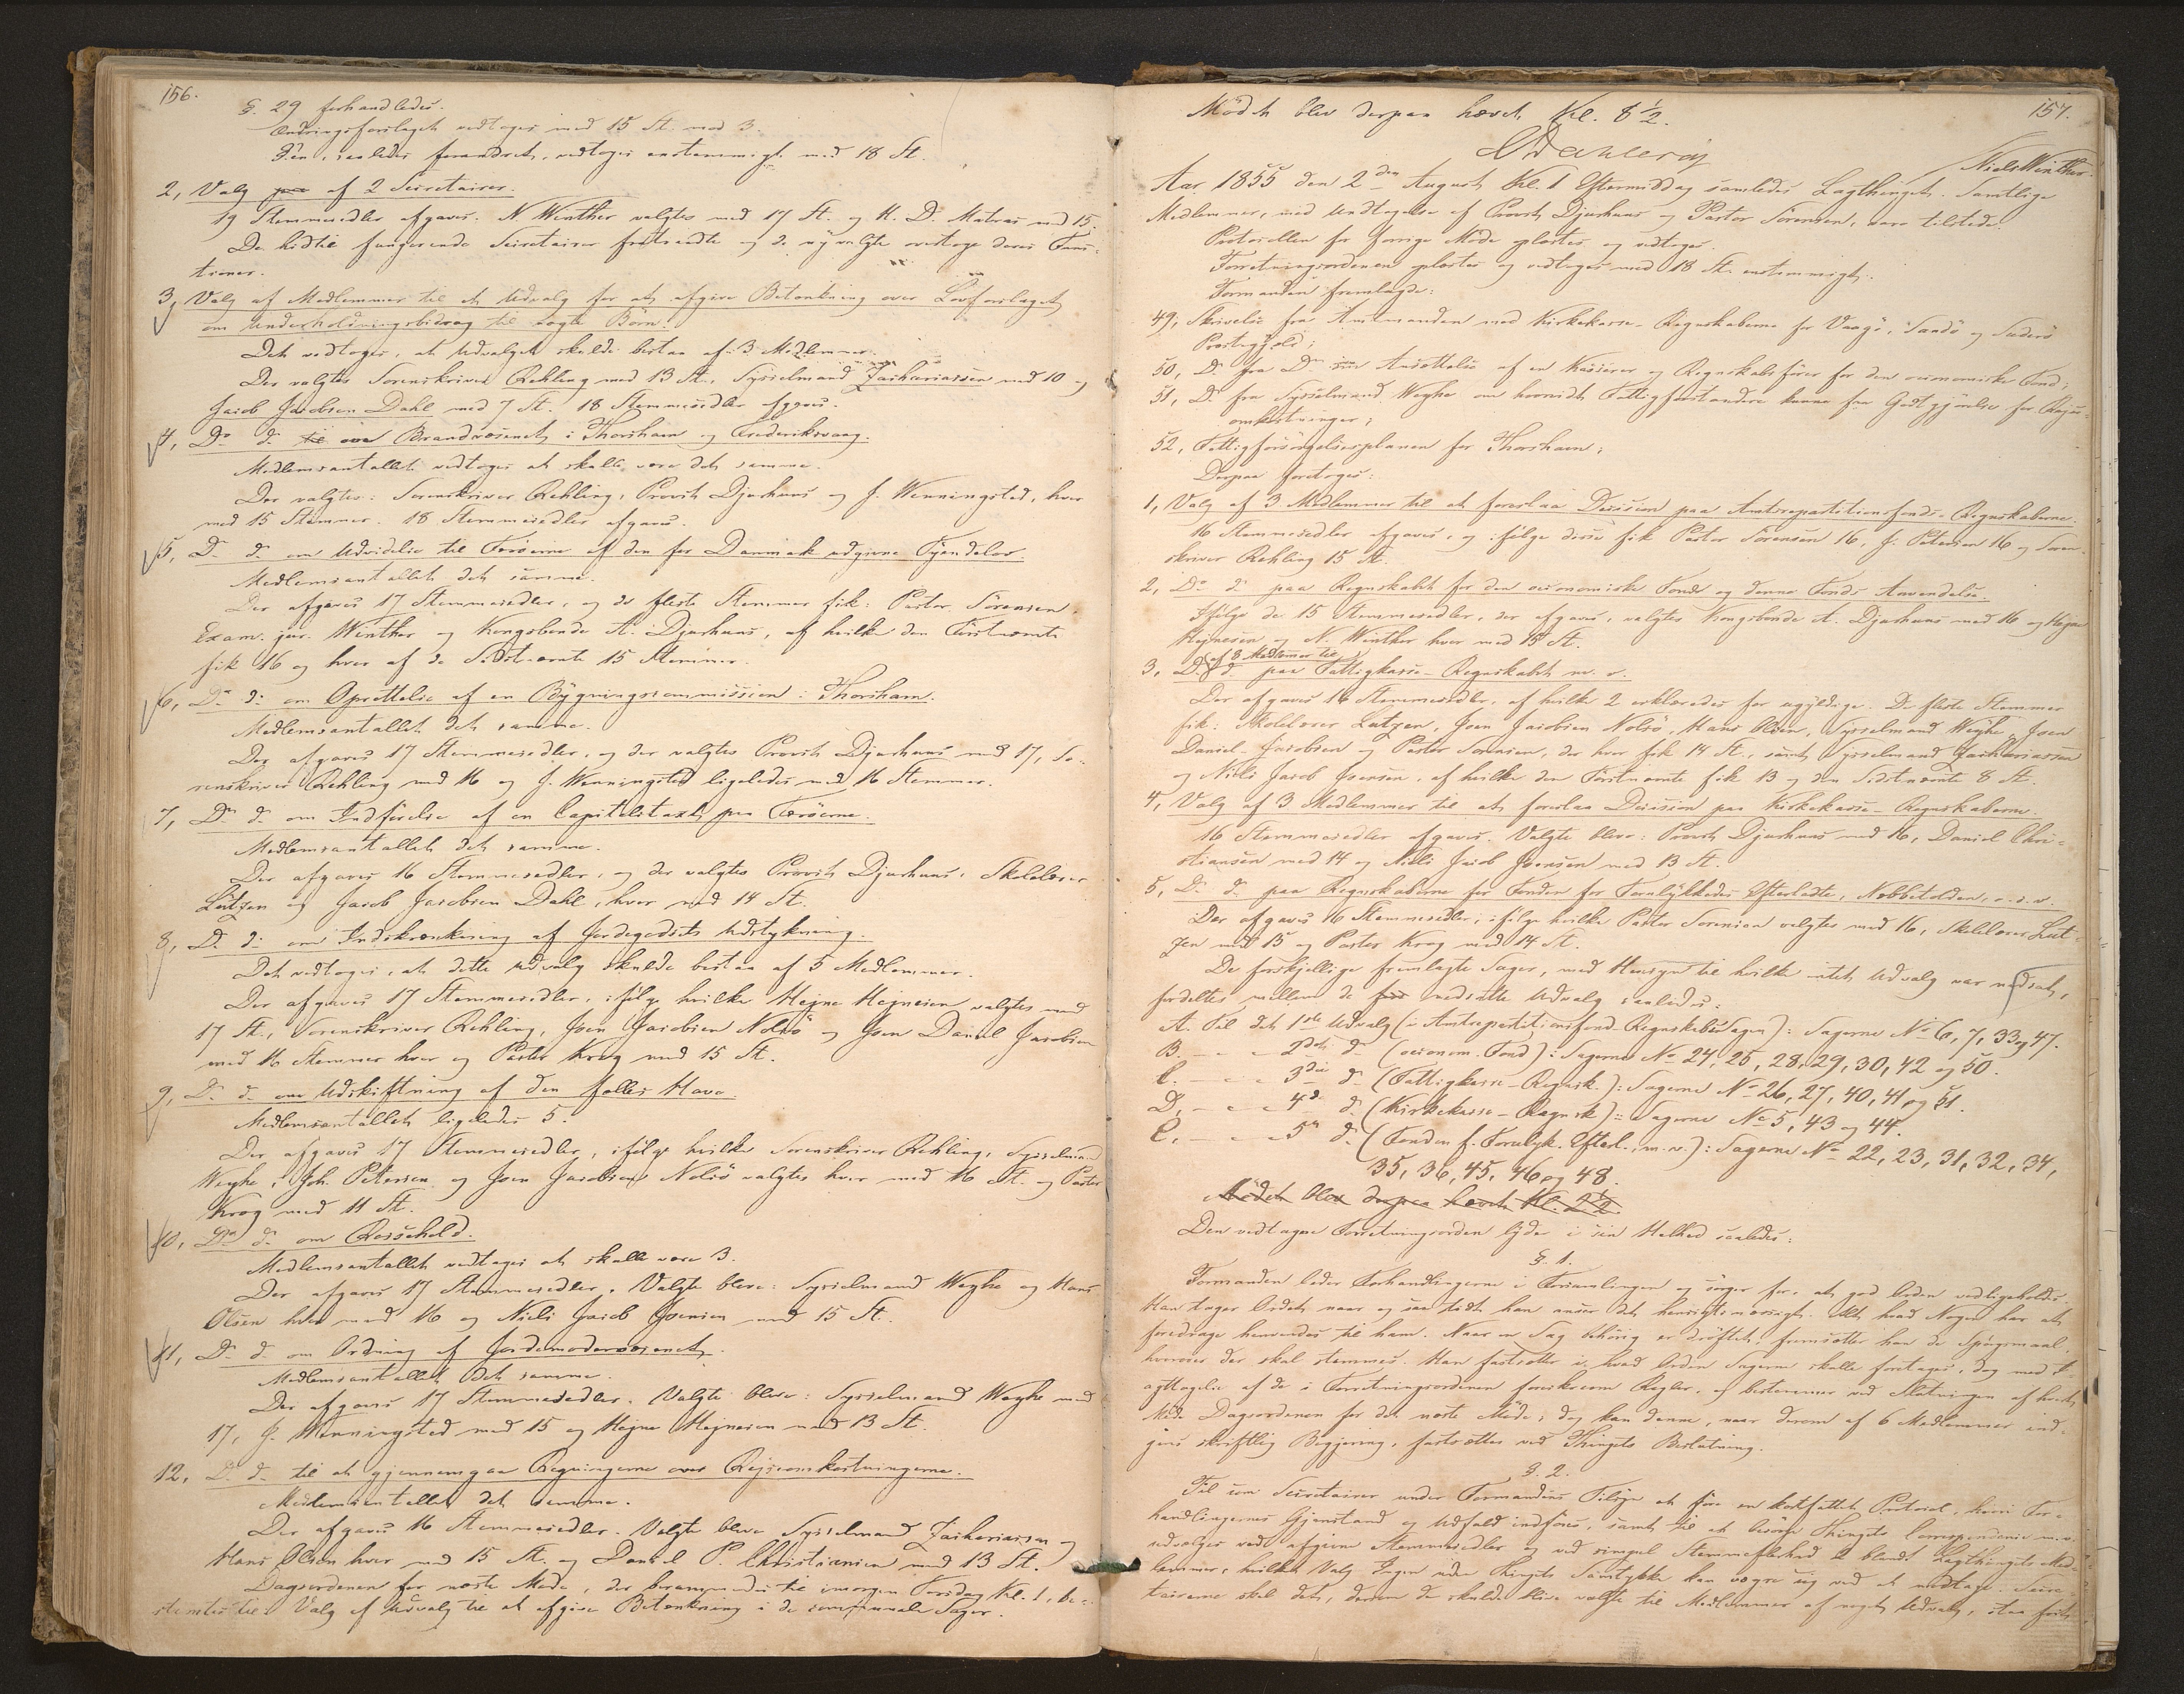 156.
§. 29 forhandledes.
Ændringsforslaget vedtoges med 15 St. mod 3.
§'en, saaledes forandret, vedtoges enstemmigt med 18 St.
2, Valg paa af 2 Secretairer.
19 Stemmesedler afgaves. N. Winther valgtes med 17 St. og H. D. Matras med 15.
De hidtil fungerende Secretairer fratraadte og de nyvalgte overtoge deres Func-
tioner.
3, Valg af Medlemmer til et Udvalg for at afgive Betænkning over Lovforslaget
om Underholdningsbidrag til uægte Børn.
Det vedtoges, at Udvalget skulde bestaa af 3 Medlemmer.
Der valgtes Sorenskriver Røhling med 13 St., Sysselmand Zachariassen med 10 og
Jacob Jacobsen Dahl med 7 St. 18 Stemmesedler afgaves.
4, Do do til over Brandvæsenet i Thorshavn og Frederiksvaag.
Medlemsantallet vedtoges at skulle være det samme.
Der valgtes: Sorenskriver Røhling, Provst Djurhuus og J. Wenningsted, hver
med 15 Stemmer. 18 Stemmesedler afgaves.
5, Do do om Udvidelse til Færøerne af den for Danmark udgivne Tyendelov.
Medlemsantallet det samme.
Der afgaves 17 Stemmesedler, og de fleste Stemmer fik: Pastor Sørensen,
Exam. jur. Winther og Kongsbonde A. Djurhuus, af hvilke den Førstnævnte
fik 16 og hver af de Sidstnævnte 15 Stemmer.
6, Do do om Oprettelse af en Bygningscommission i Thorshavn.
Medlemsantallet det samme.
Der afgaves 17 Stemmesedler, og der valgtes Provst Djurhuus med 17, So-
renskriver Røhling med 16 og J. Wenningsted ligeledes med 16 Stemmer.
7, Do do om Indførelse af en Capitelstaxt paa Færøerne.
Medlemsantallet det samme.
Der afgaves 16 Stemmesedler, og der valgtes Provst Djurhuus, Skolelærer
Lützen og Jacob Jacobsen Dahl, hver med 14 St.
8, Do do om Indskrænkning af Jordegodsets Udstykning.
Det vedtoges, at dette Udvalg skulde bestaa af 5 Medlemmer.
Der afgaves 17 Stemmesedler, ifølge hvilke Hejne Hejnesen valgtes med
17 St., Sorenskriver Røhling, Joen Jacobsen Nolsø og Joen Daniel Jacobsen
med 16 Stemmer hver og Pastor Krog med 15 St.
9, Do do om Udskiftning af den fælles Have.
Medlemsantallet ligeledes 5.
Der afgaves 17 Stemmesedler, ifølge hvilke Sorenskriver Røhling, Sysselmand
Weyhe, Joh. Petersen og Joen Jacobsen Nolsø valgtes hver med 16 St. og Pastor
Krog med 11 St.
10, Do do om Rossehold.
Medlemsantallet vedtoges at skulle være 3.
Der afgaves 17 Stemmesedler. Valgte bleve: Sysselmand Weyhe og Hans
Olsen hver med 16 og Niels Jacob Joensen med 15 St.
11, Do do om Ordning af Jordemodervæsenet.
Medlemsantallet det samme.
Der afgaves 17 Stemmesedler. Valgte bleve: Sysselmand Weyhe med
17, J. Wenningsted med 15 og Hejne Hejnesen med 13 St.
12, Do do til at gjennemgaa Regningerne over Rejseomkostningerne.
Medlemsantallet det samme.
Der afgaves 16 Stemmesedler. Valgte bleve Sysselmand Zachariassen og
Hans Olsen hver med 15 St. og Daniel P. Christiansen med 13 St.
Dagsordenen for næste Møde, der berammedes til imorgen Torsdag Kl. 1, be-
stemtes til: Valg af Udvalg til at afgive Betænkning i de communale Sager.
157.
Mødet blev derpaa hævet Kl. 8½.
Dahlerup
Niels Winther.
Aar 1855 den 2den August Kl. 1 Eftermiddag samledes Lagthinget. Samtlige
Medlemmer, med Undtagelse af Provst Djurhuus og Pastor Sørensen, vare tilstede.
Protocollen for forrige Møde oplæstes og vedtoges.
Forretningsordenen oplæstes og vedtoges med 18 St. enstemmigt.
Formanden fremlagde:
49, Skrivelse fra Amtmanden med Kirkekasse-Regnskaberne for Vaagø, Sandø og Suderø
Præstegjeld;
50, Do fra Do om Ansættelse af en Kasserer og Regnskabsfører for den oeconomiske Fond;
51, Do fra Sysselmand Weyhe om hvorvidt Fattigforstandere kunne faae Godtgjørelse for Rejse-
omkostninger;
52, Fattigforsørgelsesplanen for Thorshavn;
Derpaa foretoges:
1, Valg af 3 Medlemmer til at foreslaa Decision paa Amtsrepartitionsfonds-Regnskaberne.
16 Stemmesedler afgaves, og ifølge disse fik Pastor Sørensen 16, J. Petersen 16 og Soren-
skriver Røhling 15 St.
2, Do do paa Regnskabet for den oeconomiske Fond og denne Fonds Anvendelse.
Ifølge de 15 Stemmesedler, der afgaves, valgtes Kongsbonde A. Djurhuus med 16 og Hejne
Hejnesen og N. Winther hver med 15 St.
af 8 Medlemmer til
3, Do do paa Fattigkasse-Regnskabet m. v.
Der afgaves 16 Stemmesedler, af hvilke 2 erklæredes for ugyldige. De fleste Stemmer
fik: Skolelærer Lützen, Joen Jacobsen Nolsø, Hans Olsen, Sysselmand Weyhe, Joen
Daniel Jacobsen og Pastor Sørensen, der hver fik 14 St., samt Sysselmand Zachariassen
og Niels Jacob Joensen, af hvilke den Førstnævnte fik 13 og den Sidstnævnte 8 St.
4, Valg af 3 Medlemmer til at foreslaa Decision paa Kirkekasse-Regnskaberne.
16 Stemmesedler afgaves. Valgte bleve: Provst Djurhuus med 16, Daniel Chri-
stiansen med 14 og Niels Jacob Joensen med 13 St.
5, Do do paa Regnskaberne for Fonden for Forulykkedes Efterladte, Næbbetolden, o. s. v.
Der afgaves 16 Stemmesedler, ifølge hvilke Pastor Sørensen valgtes med 16, Skolelærer Lüt-
zen med 15 og Pastor Krog med 14 St.
De forskjellige fremlagte Sager, med Hensyn til hvilke intet Udvalg var nedsat,
fordeltes mellem de nedsatte Udvalg saaledes:
A. Til det 1ste Udvalg (i Amtsrepartitionsfond-RegnskabsSagen): Sagerne No 6, 7, 33 og 47.
B. - - - 2det do (oeconom. Fond): Sagerne No 24, 25, 28, 29, 30, 42 og 50.
C. - - - 3die do (Fattigkasse-Regnsk.): Sagerne No 26, 27, 40, 41 og 51.
D. - - - 4de do (Kirkekasse-Regnsk): Sagerne No 5, 43 og 44.
E. - - - 5te do (Fonden f. Forulyk. Efterl., m.v.): Sagerne No 22, 23, 31, 32, 34,
35, 36, 45, 46 og 48.
Mødet blev derpaa hævet Kl. 2½.
Den vedtagne Forretningsorden lyder i sin Helhed saaledes:
§. 1.
Formanden leder Forhandlingerne i Forsamlingen og sørger for, at god Orden vedligeholdes.
Han tager Ordet, naar og saa tidt han anseer det hensigtsmæssigt. Alt hvad Nogen har at
foredrage henvendes til ham. Naar en Sag behørig er drøftet, fremsætter han de Spørgsmaal,
hvorover der skal stemmes. Han fastsætter i hvad Orden Sagerne skulle foretages, dog med I-
agttagelse af de i Forretningsordenen foreskrevne Regler, og bestemmer ved Slutningen af hvert
Møde Dagsordenen for det næste Møde; dog kan denne, naar derom af 6 Medlemmer ind-
gives skriftlig Begjæring, fastsættes ved Thingets Beslutning.
§. 2.
Til som Secretairer under Formandens Tilsyn at føre en kortfattet Protocol, hvori For-
handlingernes Gjenstand og Udfald indføres, samt til at besørge Thingets Correspondence m.v.
udvælges ved afgivne Stemmesedler og ved simpel Stemmefleerhed 2 blandt Lagthingets Med-
lemmer, hvilket Valg Ingen uden Thingets Samtykke kan vægre sig ved at modtage. Secre-
tairerne skal det, dersom de skulde blive valgte til Medlemmer af noget Udvalg, staa frit